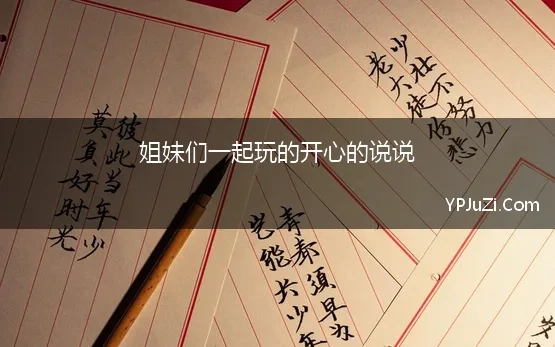 姐妹们一起玩的开心的说说
YPJuZi.Com
少壮不努力
老大徒伤悲
彼此当年少
莫負好时光
青春須早为
岂能长少年